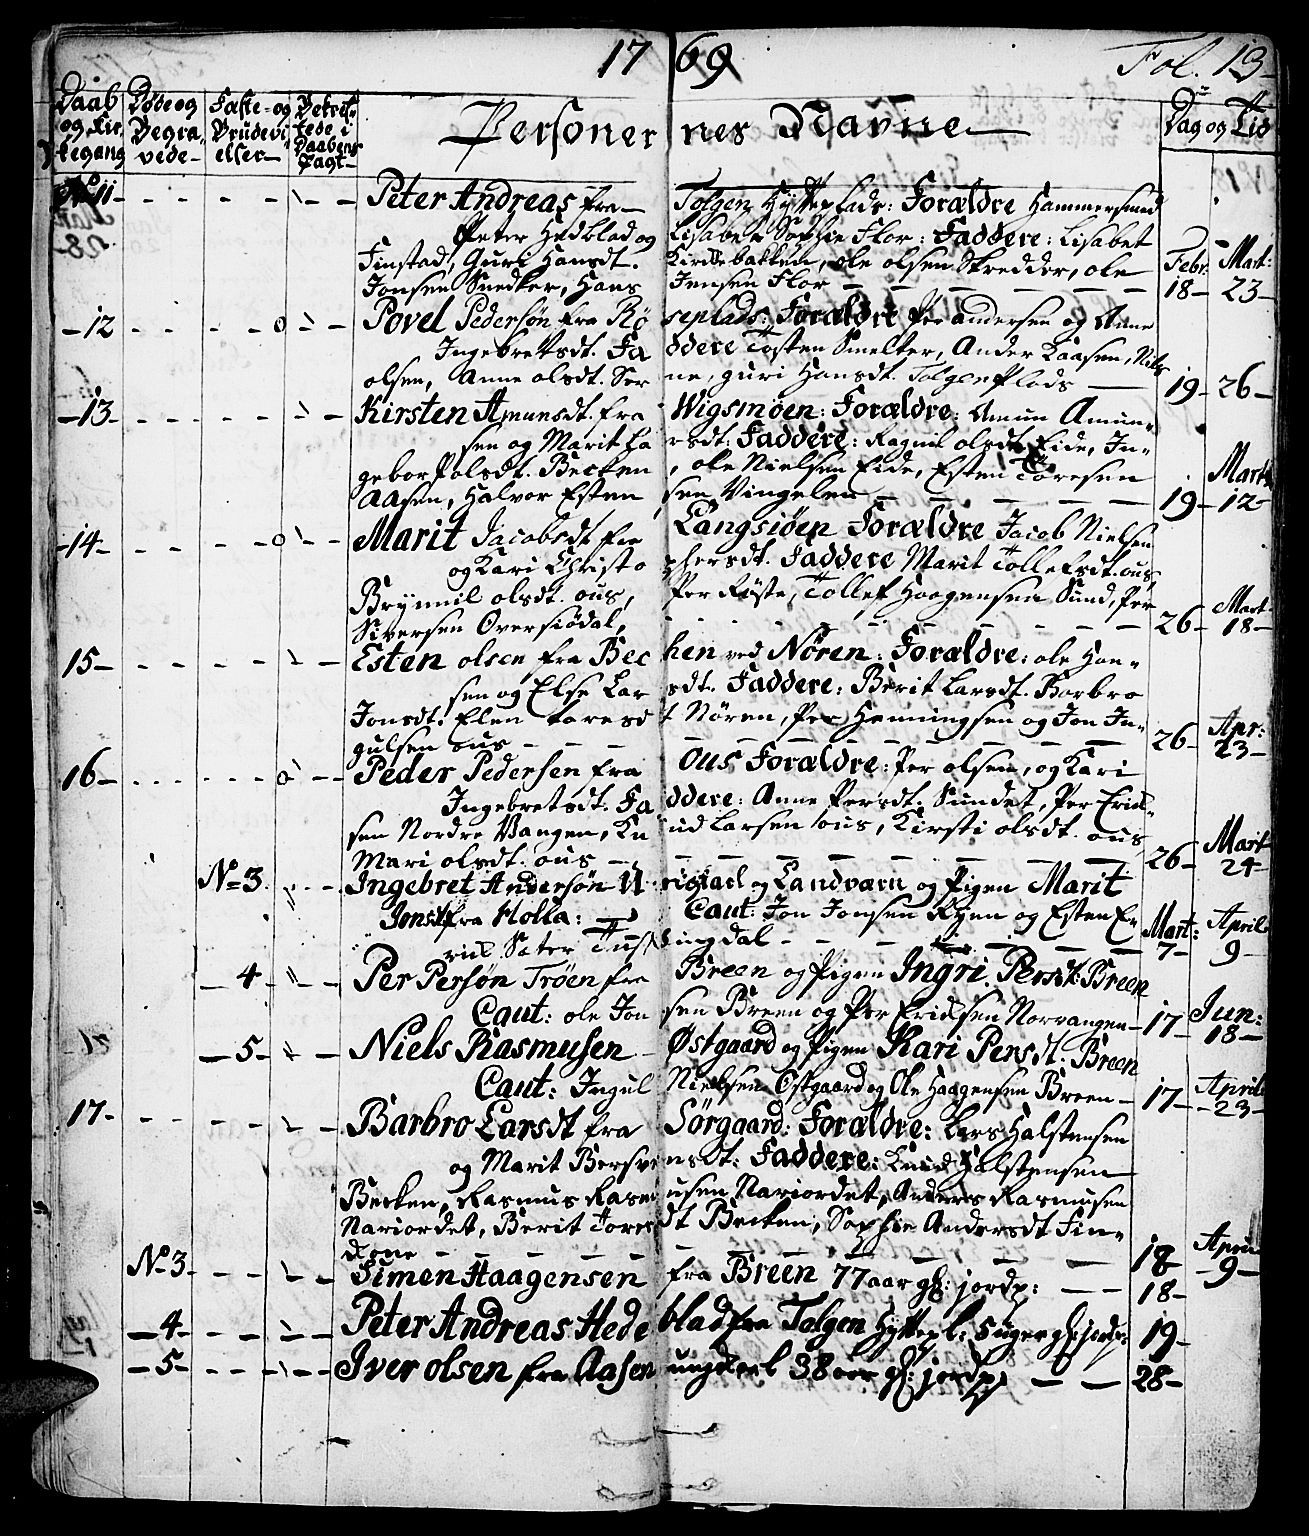 1769 Fol. 13
Daab og Kir- tegang Døde og Begra- vede Fæste- og Brudevi- elser Personernes Navne Dag og Tid
No 11 Peter Andreas fra Tolgen Hytteplads: Forældre Hammersmed
Peter Hedblad og Lisabet Sophie Flor: Faddere: Lisabet
Finstad, Guri Hansdt. Kirkebakken, ole olsen Skredder, ole
Jonsen Snedker, Hans Jensen Flor Febr: 18 Mart: 23
12 0 Povel Pedersøn fra Røseplads: Forældre Per andersen og Anne
Ingebretsdt. Faddere Tosten Smelter, Ander Laasen, Nils
olsen, Anne olsdt. Ser ne, guri Hansdt. Tolgen Plads 19 26
13 Kirsten Amunsdt. fra Wigsmøen: Forældre: Amun Amun-
sen og Marit La rsdt: Faddere: Ragnil olsdt. Eide, In-
gebor Polsdt. Becken, ole Nielsen Eide, Esten Toresen
Aasen, Halvor Esten sen Vingelen 19 Mart: 12
14 0 Marit Jacobsdt fra Langsiøen Forældre Jacob Nielsen
og Kari Christophersdt. Faddere Marit Tollefsdt. ous,
Brynnil olsdt. ous, Per Røste, Tollef Haagensen Sund, Per
Siversen Oversiødal, 26 Mart 18
15 Esten olsen fra Becken ved Nøren: Forældre: ole Han-
sen og Else Larsdt. Faddere: Berit Larsdt. Barbro
Jonsdt. Elen Toresdt Nøren, Per Henningsen og Jon In-
gulsen ous 26 Apr: 23
16 0 Peder Pedersen fra Ous Forældre: Per olsen, og Kari
Ingebretsdt. Faddere: Anne Persdt. Sundet, Per Erik-
sen Nordre Vangen, Knud Larsen ous, Kirsti olsdt. ous
Mari olsdt. ous 26 Mart 24
No 3 Ingebret Andersøn og Landværn og Pigen Marit
Jonsdt fra Holla: Caut: Jon Jonsen Ryen og Esten E-
Mart: 7 April 9
4 Per Persøn Trøen fra Breen og Pigen Ingri Persdt. Breen
Caut: ole Jonsen Breen og Per Eriksen Norvangen 17 Jun: 18
5 Niels Rasmusen Østgaard og Pigen Kari Persdt: Breen
Caut: Ingul Nielsen Østgaard og Ole Haagensen Breen 17 April 23
17 Barbro Larsdt fra Sørgaard: Forældre: Lars Halstensen
og Marit Bersvensdt: Faddere: Knud Halstensen
Becken, Rasmus Rasmusen Nariordet, Anders Rasmusen
Nariordet, Berit Toresdt Becken, Sophie Andersdt Fin-
18 April 9
No 3 Simen Haagensen fra Breen 77 aar gl: jordp: 18
4 Peter Andreas Hedeblad fra Tolgen Hyttepl: 5 uger gl: jordp: 19
5 Iver olsen fra Aasen ungkarl 38 aar gl: jordp: 28